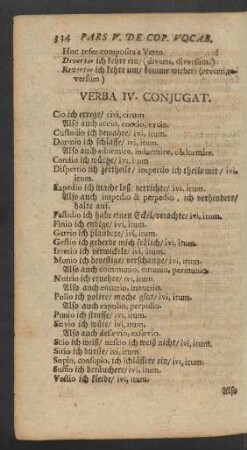 334 PARS V. DE COP. VOCAB.
Huc refer composita à Verto.
Divertor ich kehre ein/ (diverti, diversum)
Revertor ich kehre um/ komme wieder/ (reverti, reversum)
VERBA IV. CONJUGAT.
Cio ich errege/ civi, citum
Also auch accio, concio, excio.
Custodio ich bewahre/ ivi, itum.
Dormio ich schlaffe/ ivi, itum.
Also auch edormio, indormio, obdormio.
Condio ich würtze/ ivi, itum
Dispertio ich zertheile/ impertio ich theile mit/ ivi,
itum.
Expedio ich mache loß/ verrichte/ ivi, itum.
Also auch impedio & perpedio, ich verhindere/
halte auf.
Fastidio ich habe einen Eckel/ verachte/ ivi, itum
Finio ich endige/ ivi, itum.
Garrio ich plaudere/ ivi, itum.
Gestio ich geberde mich frölich/ ivi, itum.
Irretio ich verwickele/ ivi, itum.
Munio ich bevestige/ verschantze/ ivi, itum.
Also auch communio, emunio, permunio.
Nutrio ich ernehre/ ivi, itum.
Also auch enutrio, innutrio.
Polio ich polire/ mache glat/ ivi, itum.
Also auch expolio, perpolio.
Punio ich straffe/ ivi, itum.
Sævio ich wüte/ ivi, itum.
Also auch desævio, exsævio.
Scio ich weiß/ nescio ich weiß nicht/ ivi, itum.
Sitio ich dürste/ ivi, itum.
Sopio, consopio, ich schläffere ein/ ivi, itum.
Suffio ich beräuchere/ ivi, itum.
Vestio ich kleide/ ivi, itum.
Also